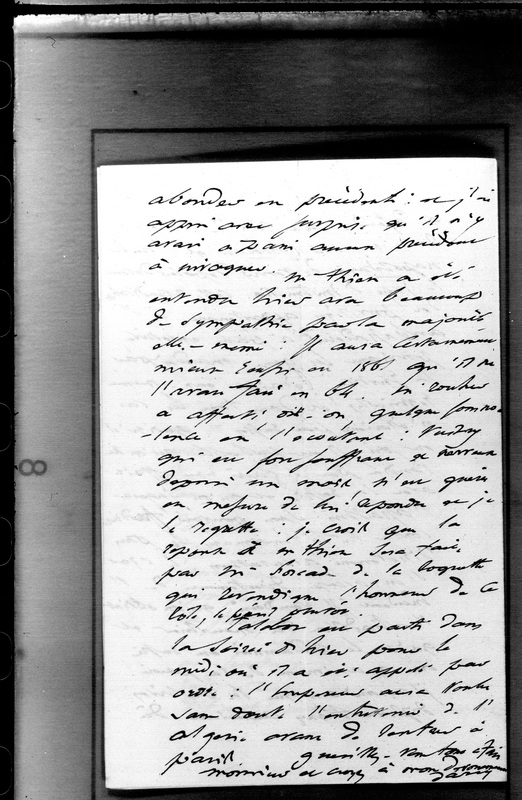 abonder en précédents : et j'ai
appris avec surprise qu'il n'y
avait à Paris aucun précédent
à invoquer. M Thiers a été
entendu hier avec beaucoup
de sympathie par la majorité
elle-même : Il aura certainement
mieux en 1865 qu'il ne
l'avait fait en 64. M Rouher
a affecté dit-on quelque somno-
-lence en l'écoutant : Vuitry
qui est fort souffrant et nerveux
depuis un mois n'est guère
en mesure de lui répondre et je
le regrette : je crois que la
réponse à M Thiers sera faite
par M de la Roquette
qui revendique l'honneur de ce
rôle, le plutôt.
est parti dans
la soirée d'hier pour le
midi où il a été appelé par
ordre : l'Empereur aura voulu
sans doute l'entretenir de l'
Algérie avant de rentrer à
Paris. tout à fait
monsieur et croyez à mon dévouement
8